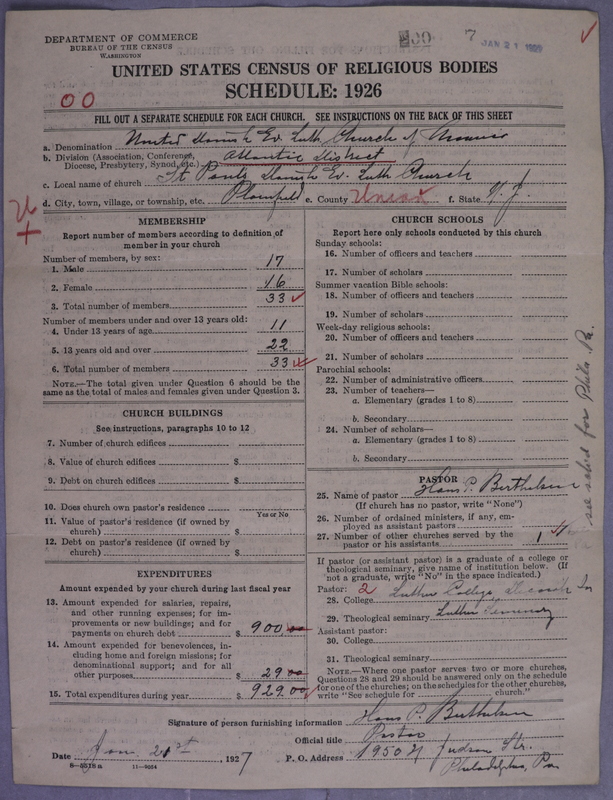 DEPARTMENT OF COMMERCE
BUREAU OF THE CENSUS
WASHINGTON
7
JAN 21 1929
UNITED STATES CENSUS OF RELIGIOUS BODIES
SCHEDULE: 1926
00
FILL OUT A SEPARATE SCHEDULE FOR EACH CHURCH. SEE INSTRUCTIONS ON THE BACK OF THIS SHEET
a. Denomination United Danish Ev. Luth. Church of America
b. Division (Association, Conference, Diocese, Presbytery, Synod, etc.) Atlantic District
c. Local name of church St Pauls Danish Ev. Luth Church
d. City, town, village, or township, etc. Plainfield e. County Union f. State N. J.
MEMBERSHIP
Report number of members according to definition of
member in your church
Number of members, by sex:
1. Male 17
2. Female 16
3. Total number of members 33
Number of members under and over 13 years old:
4. Under 13 years of age 11
5. 13 years old and over 22
6. Total number of members 33
NOTE.—The total given under Question 6 should be the
same as the total of males and females given under Question 3.
CHURCH BUILDINGS
See instructions, paragraphs 10 to 12
7. Number of church edifices
8. Value of church edifices $
9. Debt on church edifices $
10. Does church own pastor's residence
Yes or No
11. Value of pastor's residence (if owned by
church) $
12. Debt on pastor's residence (if owned by
church) $
EXPENDITURES
Amount expended by your church during last fiscal year
13. Amount expended for salaries, repairs,
and other running expenses; for im-
provements or new buildings; and for
payments on church debt $ 900.00
14. Amount expended for benevolences, in-
cluding home and foreign missions; for
denominational support; and for all
other purposes $ 29.00
15. Total expenditures during year $ 929.00
CHURCH SCHOOLS
Report here only schools conducted by this church
Sunday schools:
16. Number of officers and teachers
17. Number of scholars
Summer vacation Bible schools:
18. Number of officers and teachers
19. Number of scholars
Week-day religious schools:
20. Number of officers and teachers
21. Number of scholars
Parochial schools:
22. Number of administrative officers
23. Number of teachers—
a. Elementary (grades 1 to 8)
b. Secondary
24. Number of scholars—
a. Elementary (grades 1 to 8)
b. Secondary
see sched for Phila Pa.
PASTOR
25. Name of pastor Hans P. Berthelsen
(If church has no pastor, write "None")
26. Number of ordained ministers, if any, em-
ployed as assistant pastors
27. Number of other churches served by the
pastor or his assistants 1
If pastor (or assistant pastor) is a graduate of a college or
theological seminary, give name of institution below. (If
not a graduate, write "No" in the space indicated.)
Pastor: 2
28. College Luther College Decorah Ia
29. Theological seminary Luther Seminary
Assistant pastor:
30. College
31. Theological seminary
NOTE.—Where one pastor serves two or more churches,
Questions 28 and 29 should be answered only on the schedule
for one of the churches; on the schedules for the other churches,
write "See schedule for church."
Signature of person furnishing information Hans P. Berthelsen
Official title Pastor
Date Jan. 21st, 1927 P. O. Address 1950 N Judson Str.
Philadelphia, Pa
8—5518a 11—9054